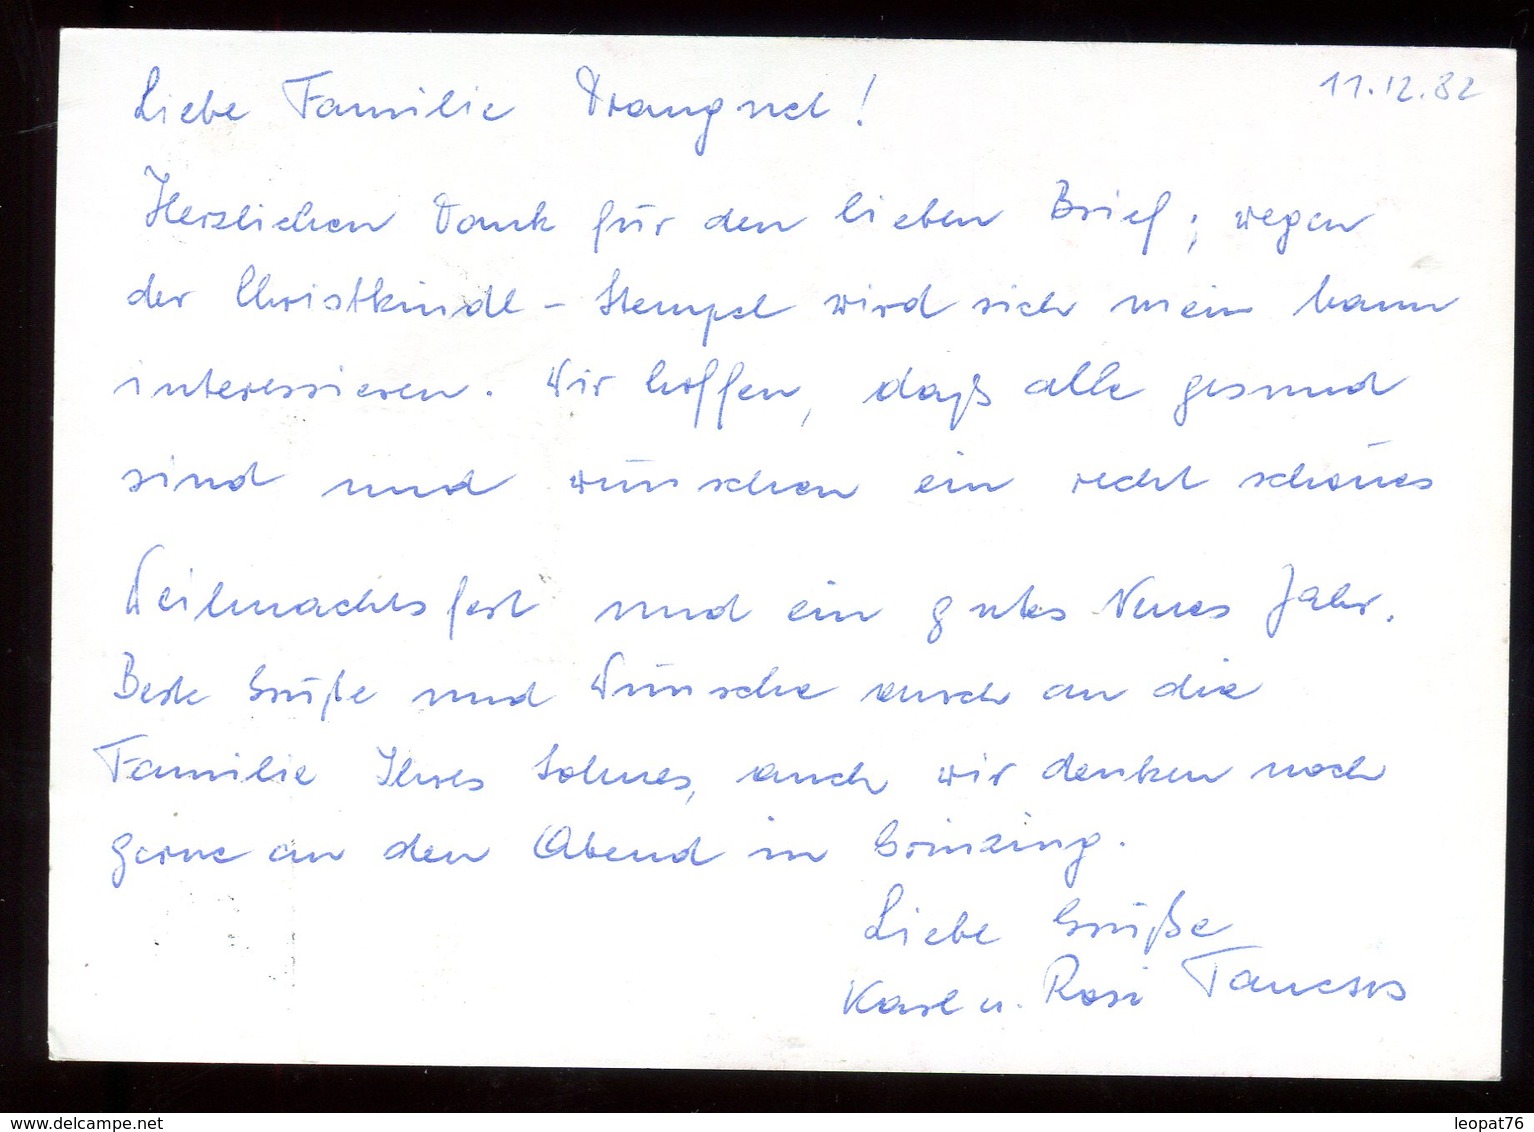 11.12.82
Liebe Familie Draugnet!
Herzlichen Dank für den lieben Brief; wegen
der Christkindl-Stempel wird sich mein Mann
interessieren. Wir hoffen, daß alle gesund
sind und wünschen ein recht schönes
Weihnachtsfest und ein gutes Neues Jahr.
Beste Grüße und Wünsche auch an die
Familie Ihres Sohnes, auch wir denken noch
gerne an den Abend in Grinzing.
Liebe Grüße
Karl u. Rosi
www.delcampe.net
leopat76